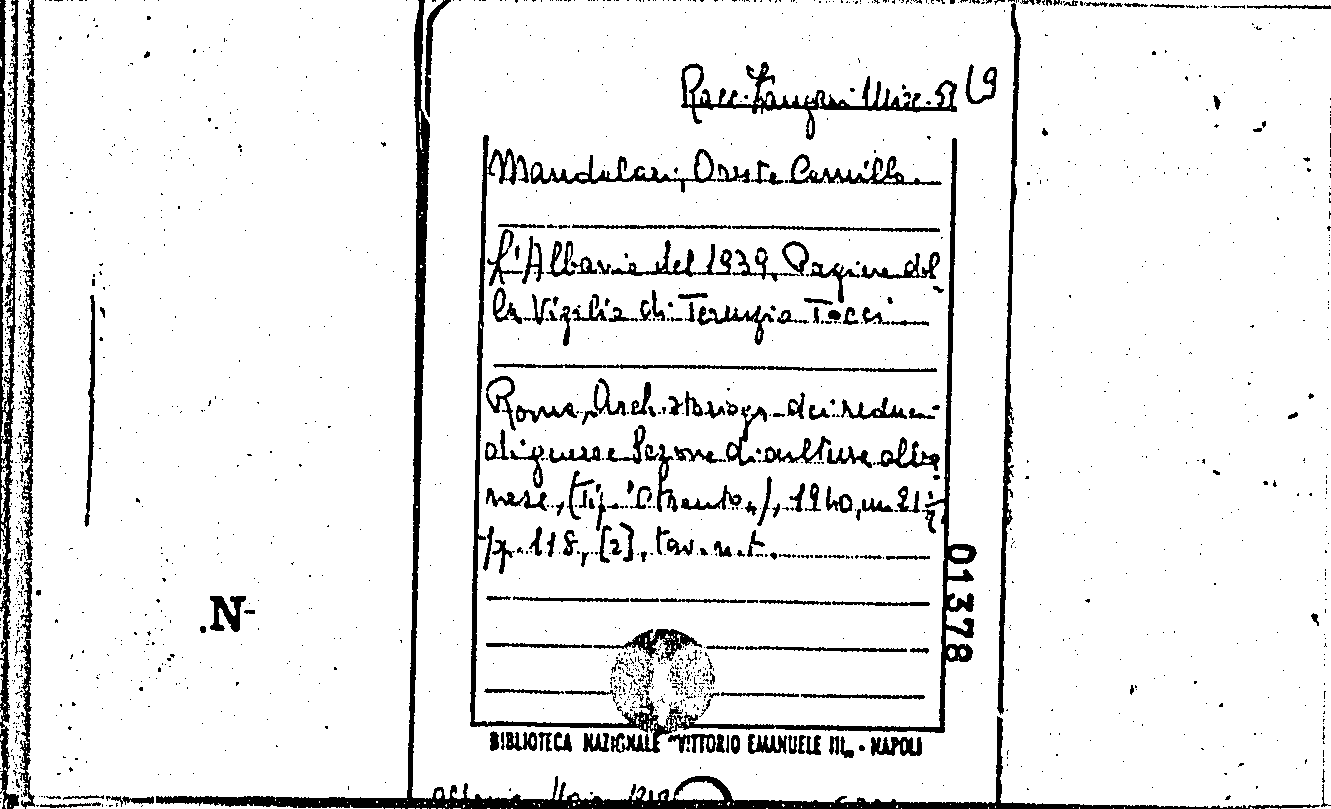 Racc. Zangari Misc. 51 (9
Mandalari, Oreste Camillo.
L'Albania del 1939. Pagine del-
la Vigilia di Terenzio Tocci.
Roma, Arch. storiogr. dei reduci
di guerra e Sezione di cultura alba-
nese, (Tip. "Otranto„), 1940, in 21½
pp. 118, [2], tav. n. t.
01378
.N-
BIBLIOTECA NAZIONALE "VITTORIO EMANUELE III„ - NAPOLI